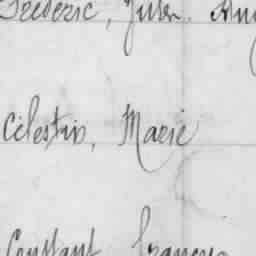 Frédéric, Jules, Aug
Célestin, Marie
Constant François